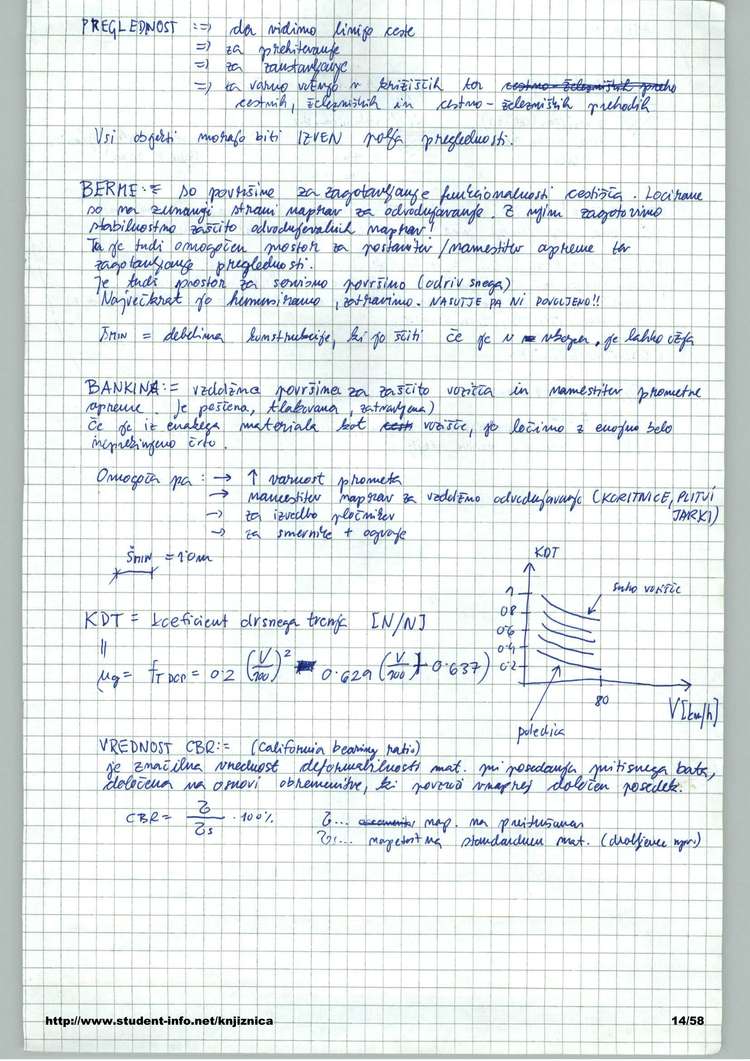 PREGLEDNOST :=) da vidimo linijo ceste
=) za prehitevanje
=) za zaustavljanje
=) za varno vožnjo v križiščih ter
cestnih, železniških in cestno-železniških prehodih
Vsi objekti morajo biti IZVEN polja preglednosti.
BERME:= so površine za zagotavljanje funkcionalnosti cestišča. Locirane
so na zunanji strani naprav za odvodnjavanje. Z njim zagotovimo
stabilnostno zaščito odvodnjevalnih naprav!
Tu je tudi omogočen prostor za postavitev/namestitev opreme ter
zagotavljanje preglednosti.
Je tudi prostor za servisno površino (odriv snega)
Največkrat jo humuziramo, zatravimo. NASUTJE PA NI DOVOLJENO!!
ŠMIN = debelina konstrukcije, ki jo ščiti če je v vkopu, je lahko ožja
BANKINA:= vzdolžna površina za zaščito vozišča in namestitev prometne
opreme. Je peščena, tlakovana, zatravljena)
Če je iz enakega materiala kot vozišče, jo ločimo z enojno belo
neprekinjeno črto.
Omogoča pa: → ↑ varnost prometa
→ namestitev naprav za vzdolžno odvodnjavanje (KORITNICE, PLITVI
JARKI)
→ za izvedbo pločnikov
→ za smernike + ograje
ŠMIN = 1.0m
KDT
1
0.8
0.6
0.4
0.2
suho vozišče
80
V[km/h]
poledica
KDT = koeficient drsnega trenja [N/N]
||
μg = fT DOP = 0.2 (V/100)² - 0.629 (V/100) + 0.637)
VREDNOST CBR:= (California bearing ratio)
je značilna vrednost deformabilnosti mat. pri posedanju pritisnega bata,
določena na osnovi obremenitve, ki povzroči vnaprej določen posedek.
CBR = τ/τs · 100%
τ... nap. na preizkušanem
τs... napetost na standardnem mat. (drobljenec npr.)
http://www.student-info.net/knjiznica
14/58